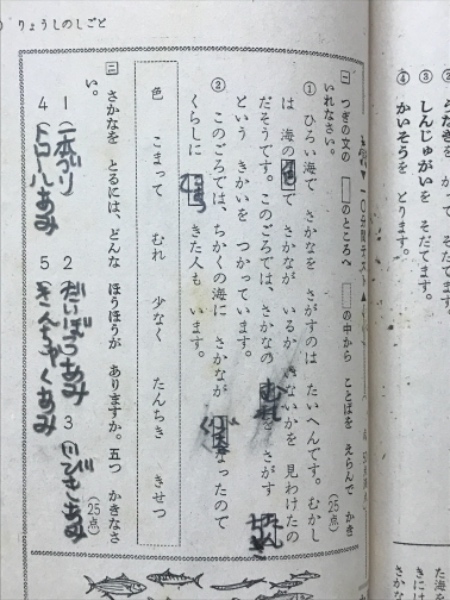 りょうしのしごと
▼一〇分間テスト▲
一 つぎの文の □のところへ □の中から ことばを えらんで かき
いれなさい。(25点)
① ひろい海で さかなを さがすのは たいへんです。むかし
は 海の色で さかなが いるか いないかを 見わけたの
だそうです。このごろでは、さかなの むれを さがす たんちき
という きかいを つかっています。
② このごろでは、ちかくの海に さかなが なったので
くらしに きた人も います。
色 こまって むれ 少なく たんちき きせつ
二 さかなを とるには、どんな ほうほうが ありますか。五つ かきなさ
い。(25点)
1(一本づり) 2 だいぼうあみ 3 じびきあみ
4(トロールあみ 5 きんちゃくあみ
③ しんじゅがいを そだてます。
④ かいそうを とります。